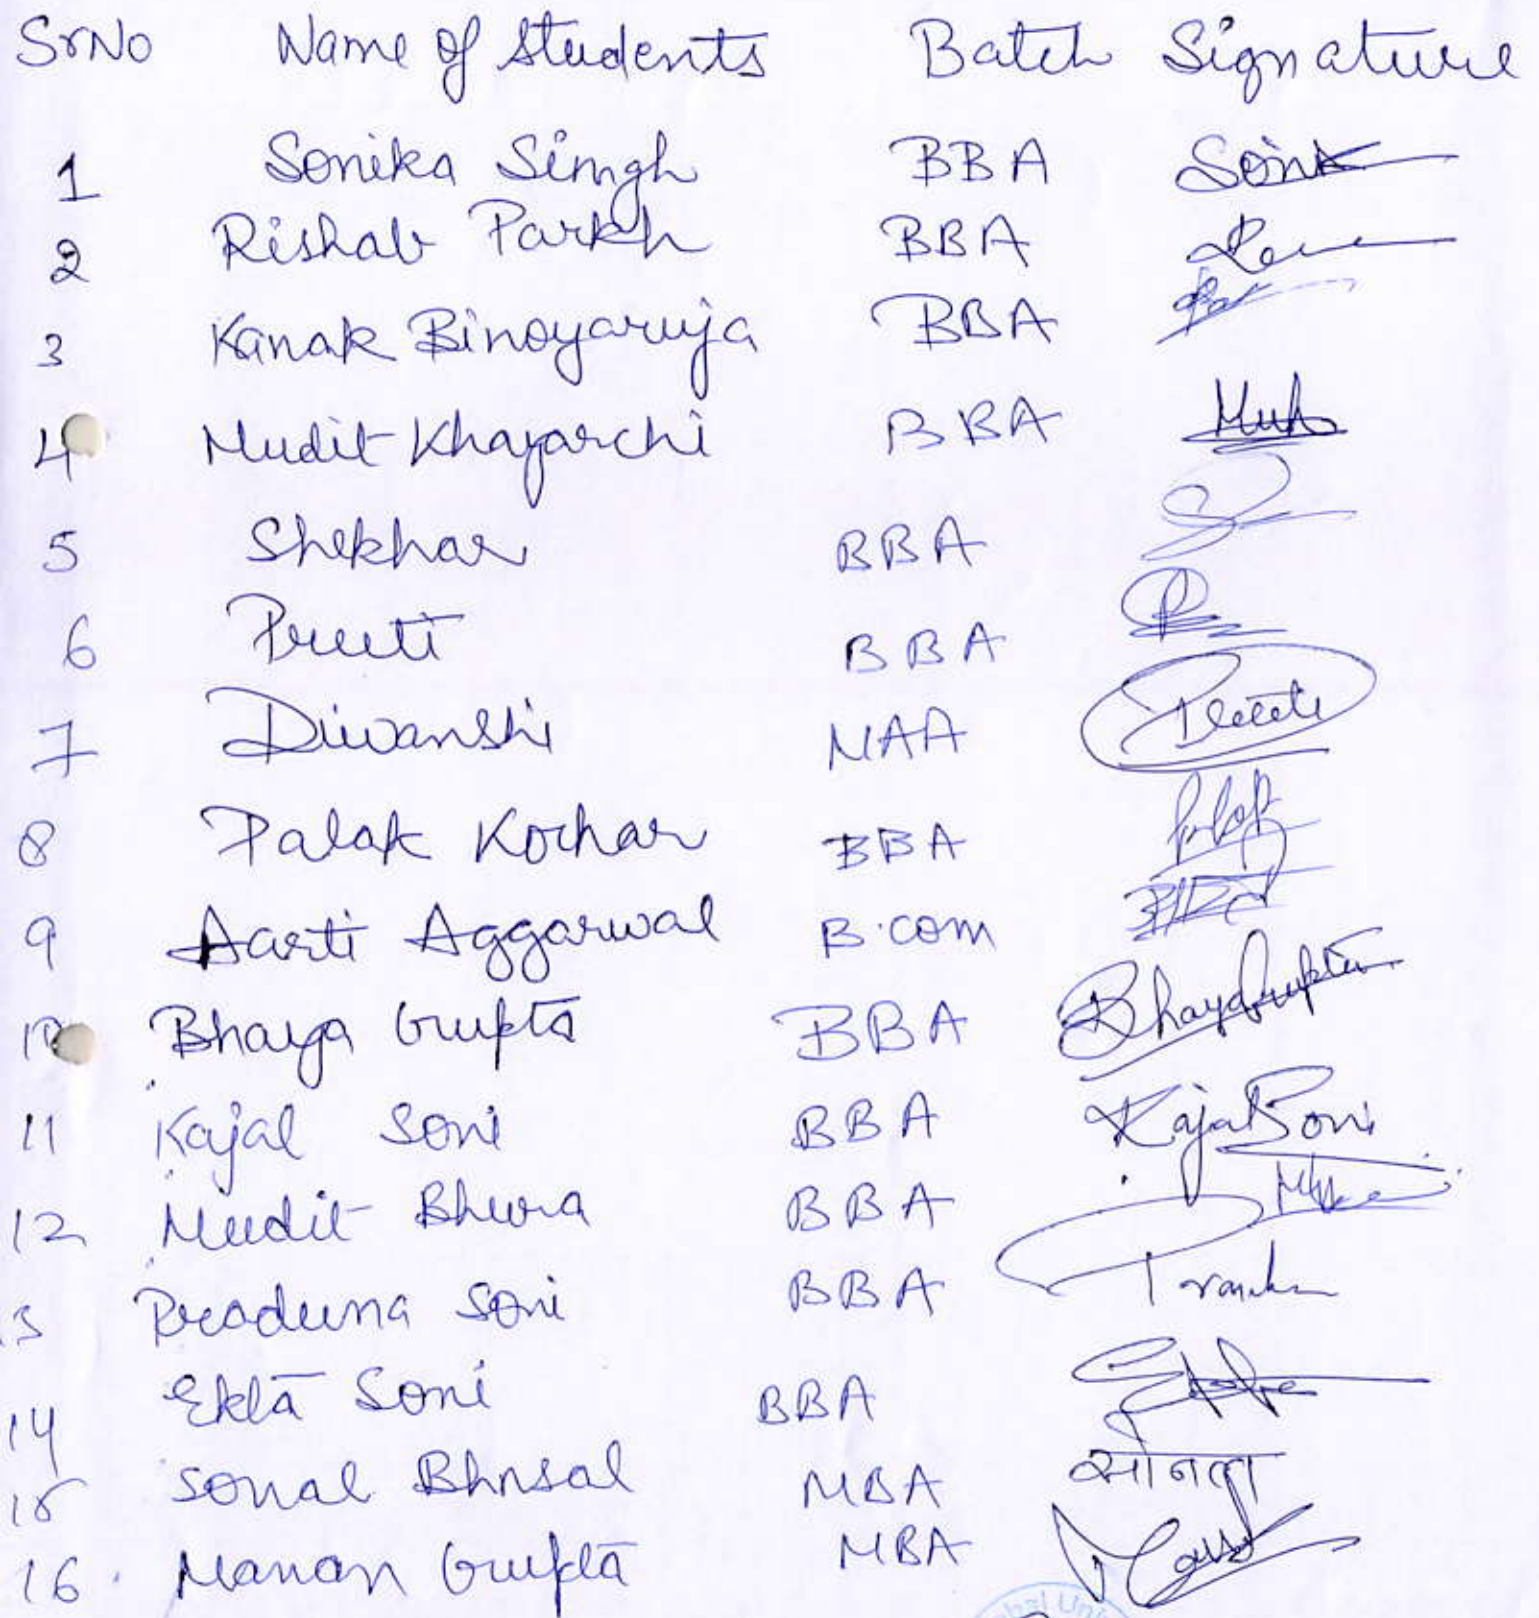 SrNo Name of Students Batch Signature
1 Sonika Simgh BBA
2 Rishab Parkh BBA
3 Kanak Binoyaruja BBA
4 Mudit Khajarchi BBA
5 Shekhar BBA
6 Preeti BBA
7 Diwanshi MAA Preeti
8 Palak Kochar BBA Palak
9 Aarti Aggarwal B.com
10 Bhavya Gupta BBA BhavyaGupta
11 Kajal Soni BBA Kajal Soni
12 Mudit Bhura BBA
13 Praduma Soni BBA
14 Ekta Soni BBA
15 Sonal Bhnsal MBA सोनल
16. Manan Gupta MBA